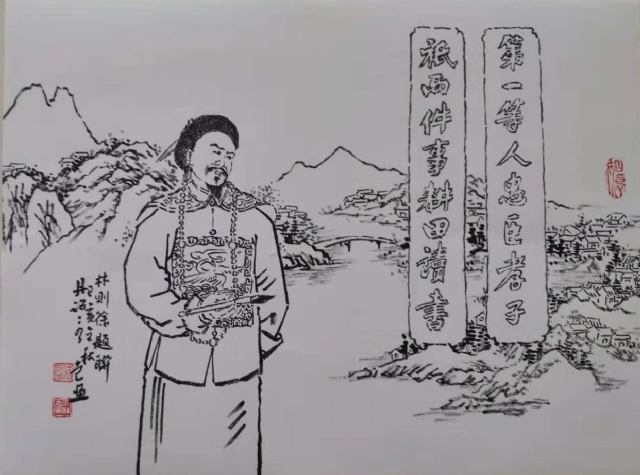 第一等人忠臣孝子
祇兩件事耕田讀書
林则徐題聯